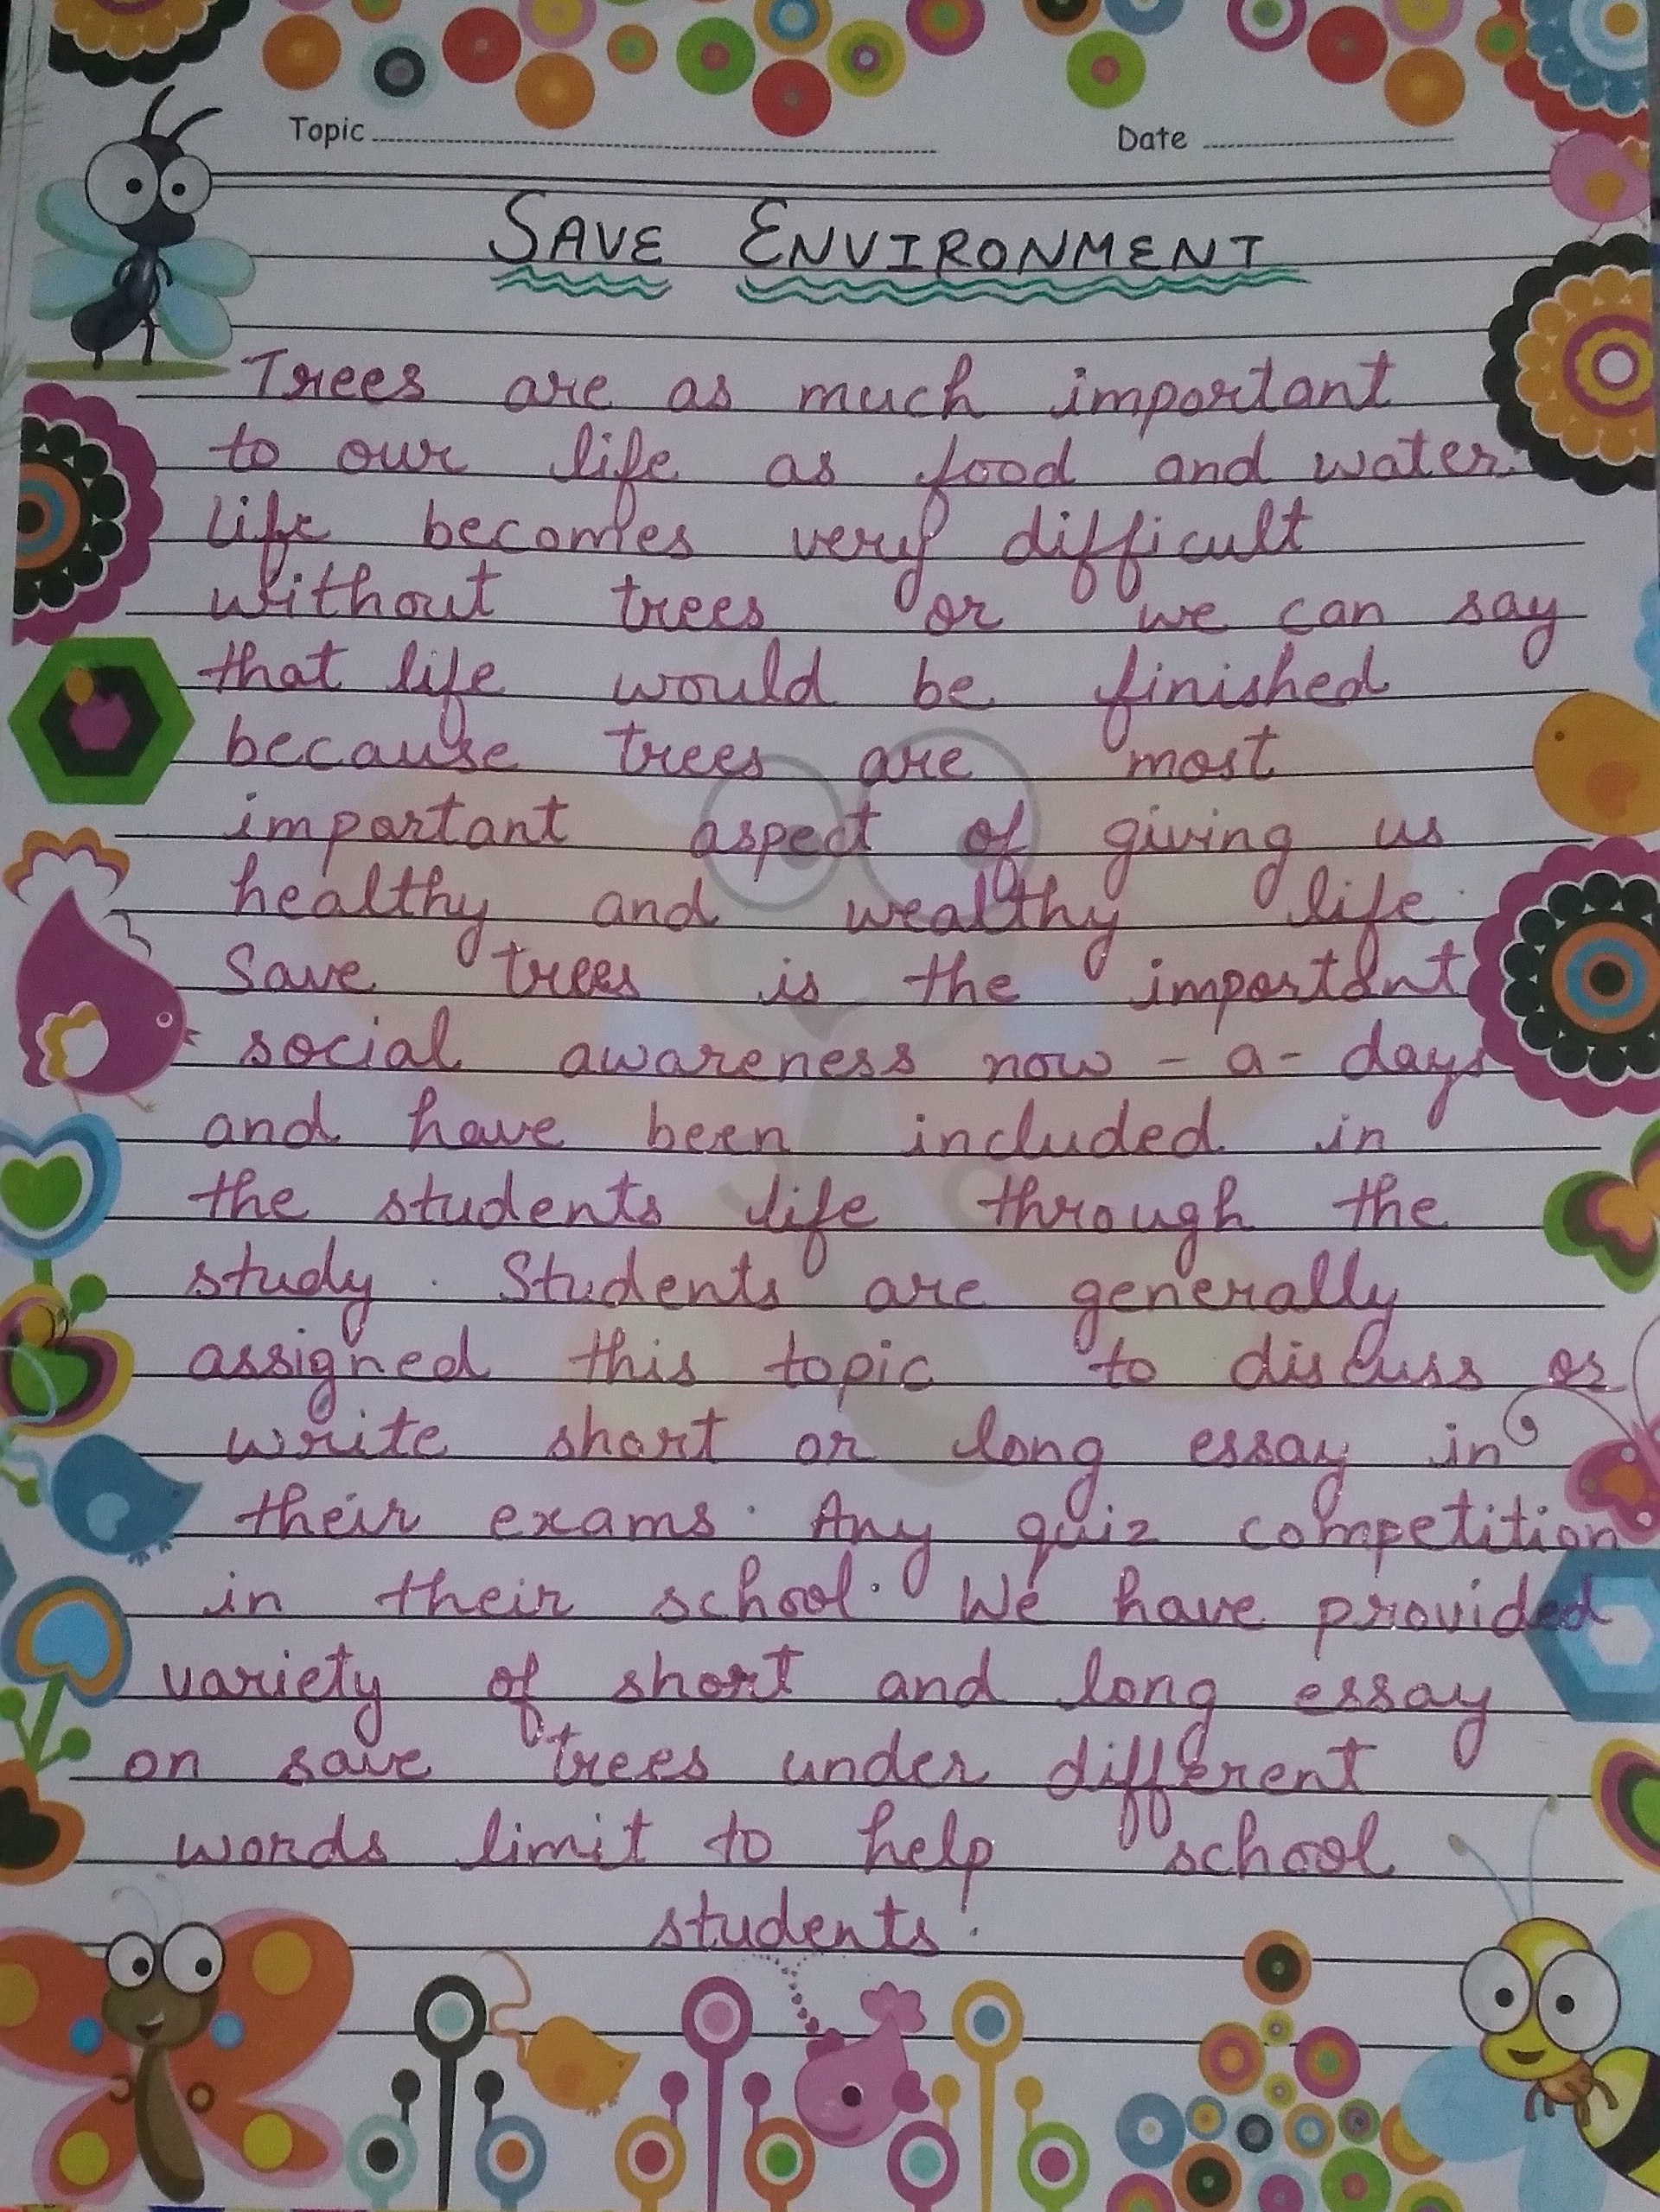 Topic
Date
SAVE ENVIRONMENT
Trees are as much important
to our life as food and water.
life becomes very difficult
without trees or we can say
that life would be finished
because trees are most
important aspect of giving us
healthy and wealthy life.
Save trees is the important
social awareness now - a - days
and have been included in
the students life through the
study. Students are generally
assigned this topic to discuss or
write short or long essay in
their exams. Any quiz competition
in their school. We have provided
variety of short and long essay
on save trees under different
words limit to help school
students.